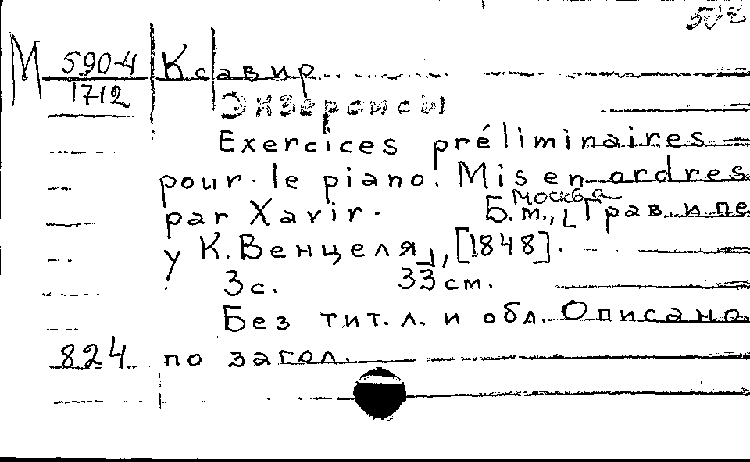 508
М 590-4 Ксавир
1712
Экзерсисы
Exercices préliminaires
pour le piano. Mis en ordres
par Xavir. Б.m., [Грав. и пе
Москва
у К. Венцеля], [1848].
3с. 33 см.
Без тит. л. и обл. Описано
824 по загол.